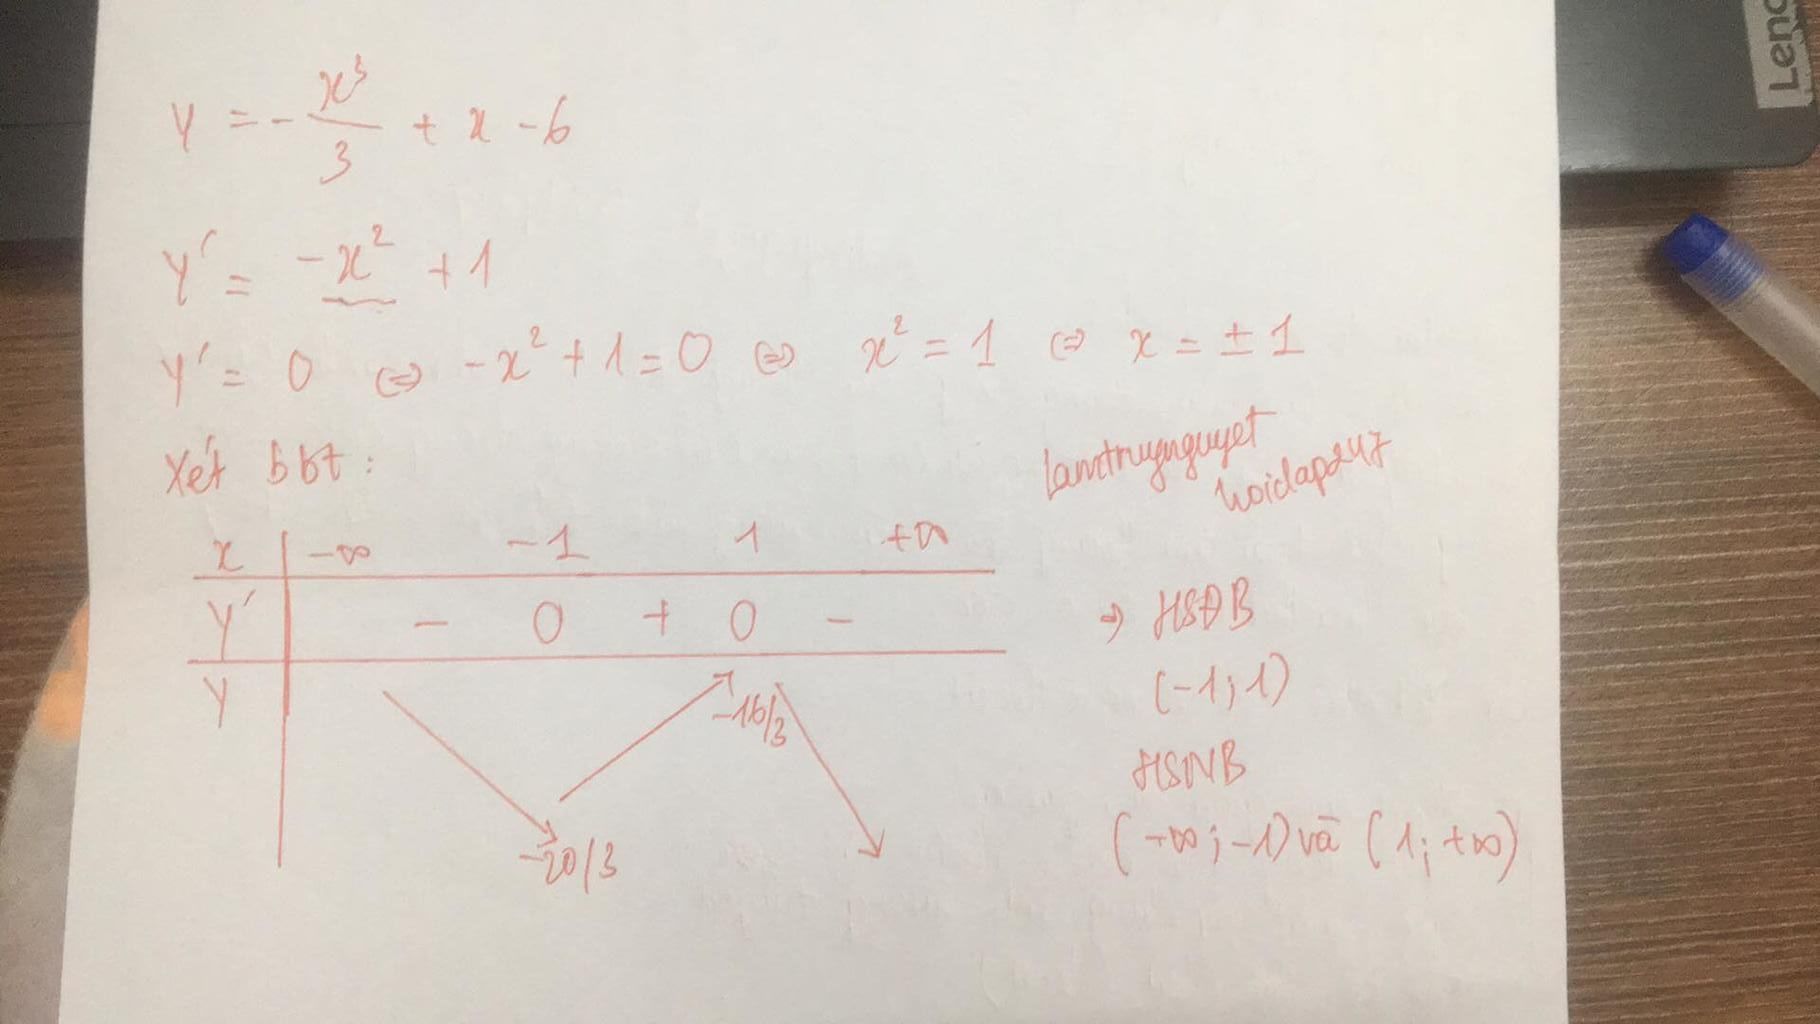 Leno
y = - x³/3 + x - 6
y' = -x² + 1
y' = 0 ⇔ -x² + 1 = 0 ⇔ x² = 1 ⇔ x = ± 1
Xét bbt:
lamtruynguyet
hoidap247
x -∞ -1 1 +∞
y' - 0 + 0 -
y
-16/3
-20/3
⇒ HSĐB
(-1; 1)
HSNB
(-∞; -1) và (1; +∞)